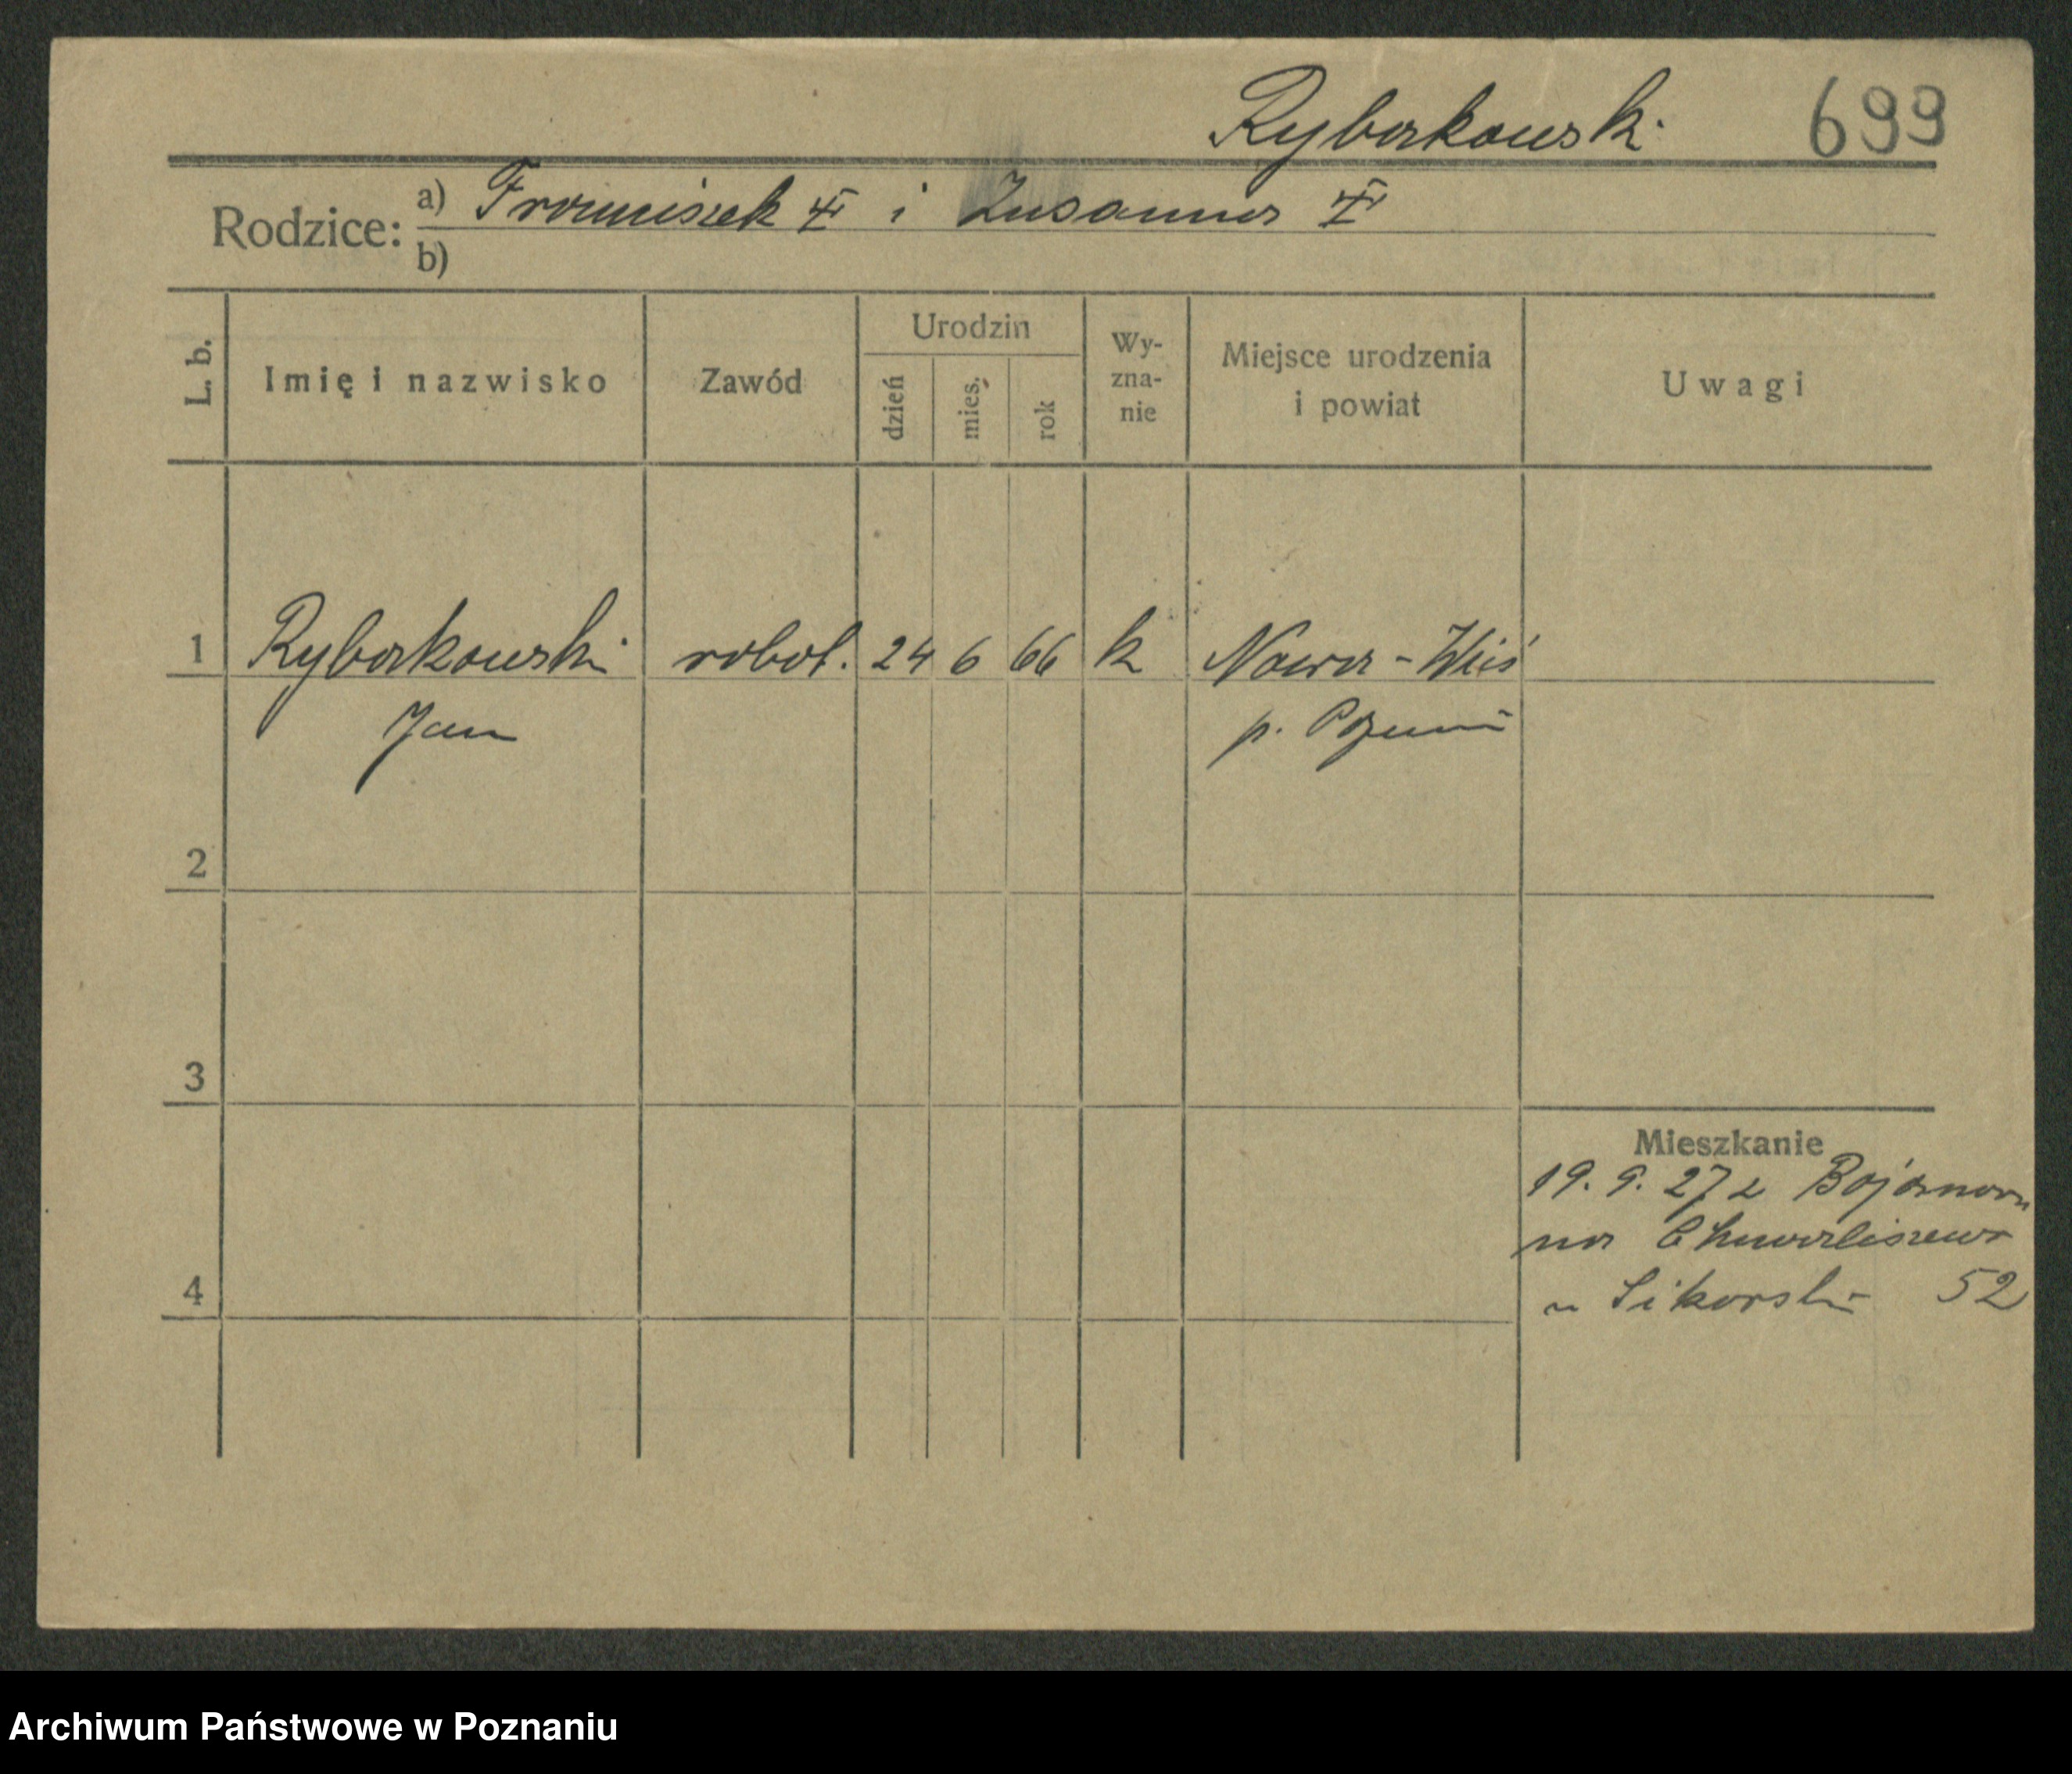 Rybarkowski 699
Rodzice: a) Franciszek ‡ i Zusanna ‡
b)
L. b. Imię i nazwisko Zawód Urodzin dzień mies. rok Wy-zna-nie Miejsce urodzenia i powiat Uwagi
1 Rybarkowski robot. 24 6 66 k Nowa-Wieś
Jan p. Poznań
2
3
Mieszkanie
19. 9. 27 z Bojanowa
na Chwaliszewo
4 u Sikorski 52
Archiwum Państwowe w Poznaniu